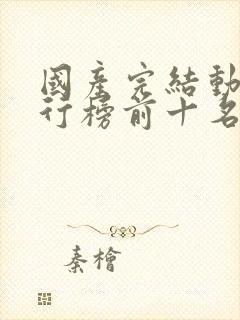 國產完結動
行榜前十名
秦檜